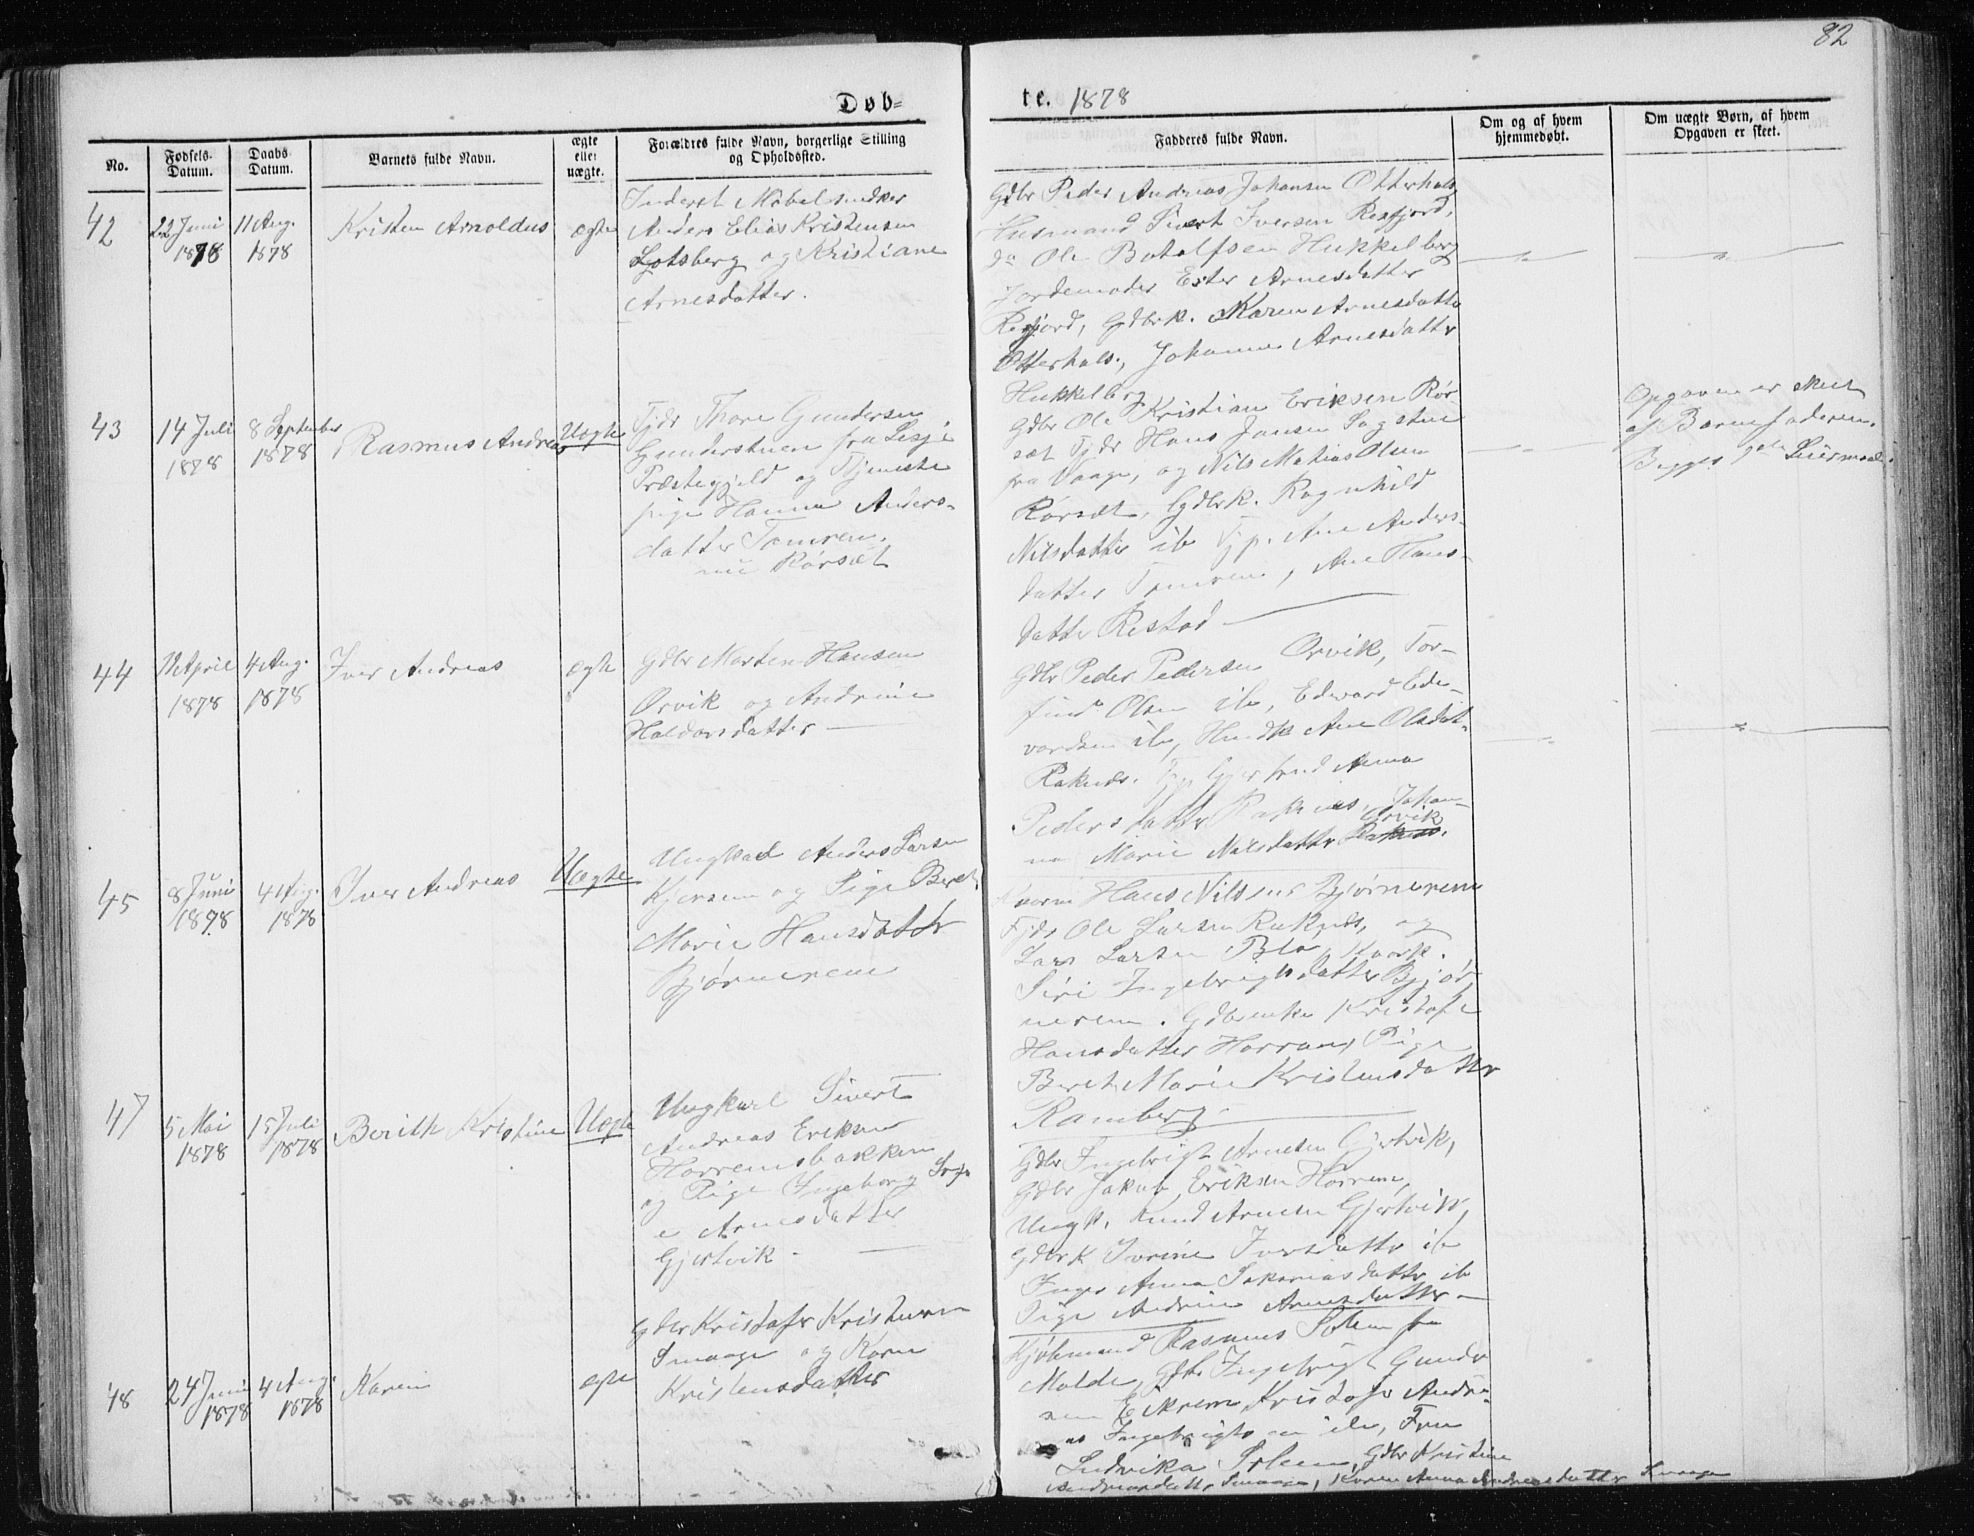 82
Døb=
te. 1878
No.
Fødsels-
Datum.
Daabs-
Datum.
Barnets fulde Navn.
ægte
eller
uægte.
Forældres fulde Navn, borgerlige Stilling
og Opholdssted.
Fadderes fulde Navn.
Om og af hvem
hjemmedøbt.
Om uægte Børn, af hvem
Opgaven er skeet.
42
22 Juni
1878
11 Aug.
1878
Kristen Arnoldus
ægte
Inderst Møbelsnedker
Anders Elias Kristensen
Lotsberg og Kristiane
Arnesdatter.
Gdbr Peder Andreas Johansen Otterhals
Husmand Sivert Iversen Resfjord,
do Ole Botolfsen Hukkelberg
Jordemoder Ester Arnesdatter
Resfjord, Gdbrk. Karen Arnesdatter
Otterhals, Johanne Arnesdatter
Hukkelberg
43
14 Juli
1878
8 September
1878
Rasmus Andreas
Uægte
Tjdr Thore Gundersen
Gunderstuen fra Lesje
Præstegjeld og Tjeneste
pige Hanna Anders-
datter Tomren,
nu Rørsæt
Gdbr Ole Kristian Eriksen Rør
sæt Tjdr Hans Jansen Sagstuen
fra Vaage, og Nils Matias Olsen
Rørsæt, Gdbrk. Ragnhild
Nilsdatter ib Tjp. Ane Anders-
datter Tomren, Ane Hans-
datter Restad
Opgaven er skeet
af Barnefaderen.
Begges Leiermaal.
44
12 April
1878
4 Aug.
1878
Iver Andreas
ægte
Gdbr Morten Hansen
Orvik og Andrine
Haldorsdatter
Gdbr Peder Pedersen Orvik, Tor-
find Olsen ib, Edward Ed-
vardsen ib, Hmdk Ane Olsdat-
Raknæs. Tjp Gjertrud Anna
Pedersdatter Raknæs, Johan-
na Marie Nilsdatter Raknæs. Orvik
45
8 Juni
1878
4 Aug.
1878
Iver Andreas
Uægte
Ungkarl Anders Larsen
Kjersem og Pige Beret
Marie Hansdatter
Bjørnerem
Kaarm Hans Nilsen Bjørnerem
Tjdr Ole Larsen Raknes, og
Lars Larsen Blø, Kaark.
Siri Ingebrigtsdatter Bjør
nerem. Gdbrenke Kristofe
Hansdatter Horrem, Pige
Beret Marie Kristensdatter
Ramberg
47
5 Mai
1878
15 Juli
1878
Berith Kristine
Uægte
Ungkarl Sivert
Andreas Eriksen
Horremsbakken
og Pige Ingeborg Sofi
e Arnesdatter
Gjertvik.
Gdbr Ingebrigt Arnesen Gjertvik,
Gdbr Jakob Eriksen Horrem,
Ungk. Knud Arnesen Gjertvik,
Gdbrk Iverine Iversdatter ib
Inger Anna Sakariasdatter ib
Pige Andrine Arnesdatter
48
24 Juni
1878
4 Aug.
1878
Karen
ægte
Gdbr Kristofer Kristensen
Smaage og Karen
Kristensdatter
Kjøbmand Rasmus Solem fra
Molde, Gdbr Ingebrigt Gunder
sen Eikrem, Kristofer Andre
as Ingebrigtsen ib, Fru
Ludvika Solem, Gdbr Kristine
Andreasdatter Smaage, Karen Anna Andreasdatter Smaage